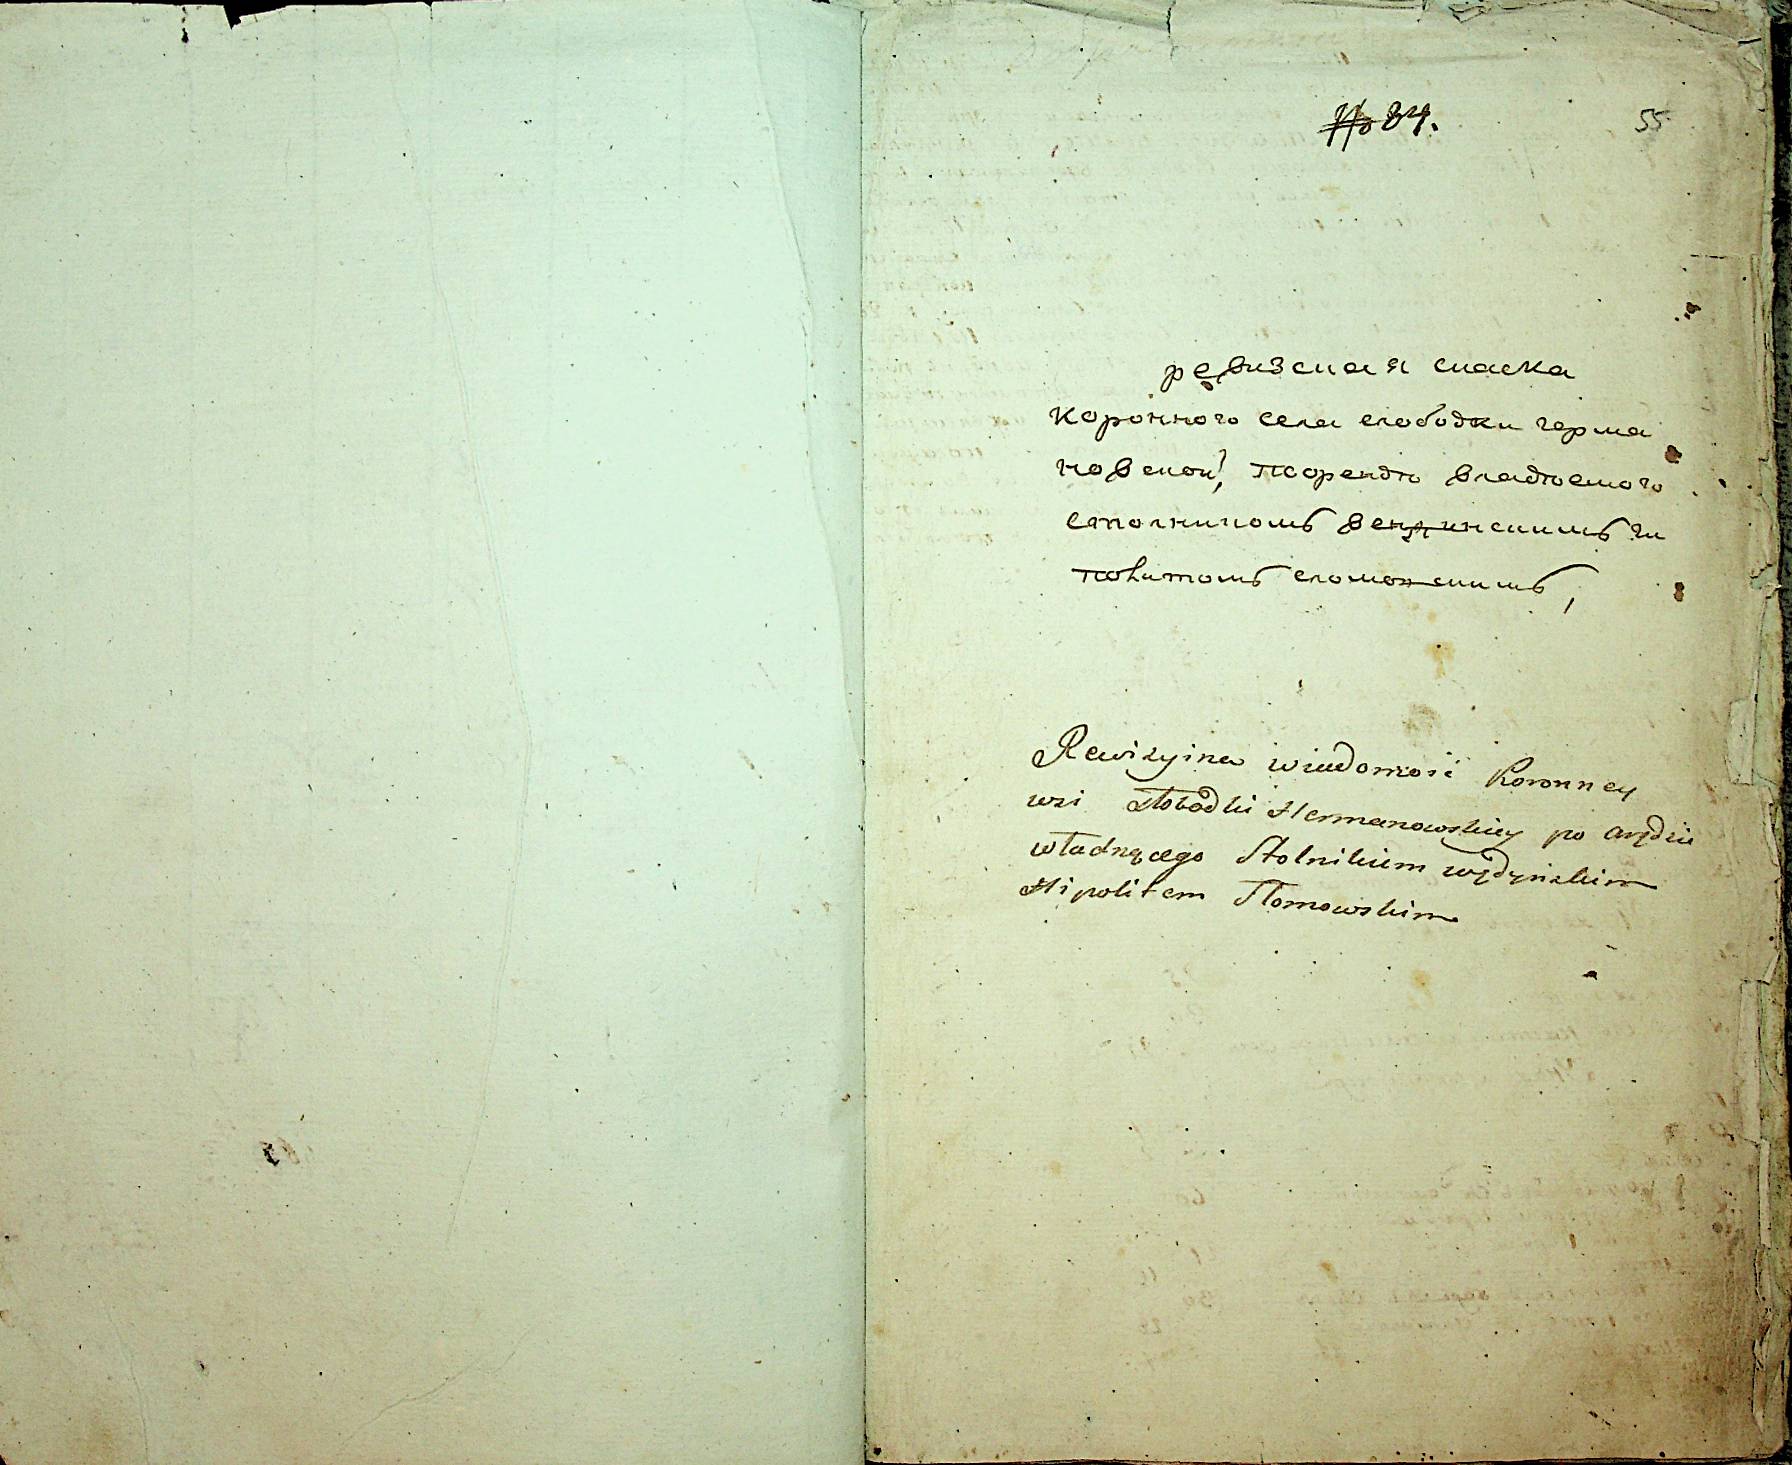 № 84.
55
ревизская скаска
коронного села слободки герма
новской, поорендѣ владѣемого
столникомъ вендинскимъ ги
политомъ сломовскимъ,
Rewizyina wiadomość Koronney
wsi Słobodki Hermanowskiey po arędzie
władnącego Stolnikiem wędyńskim
Hipolitem Słomowskim